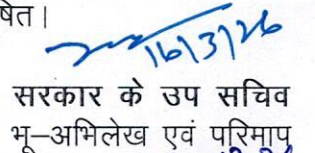 षेत।
16/3/26
सरकार के उप सचिव
भू–अभिलेख एवं परिमाप